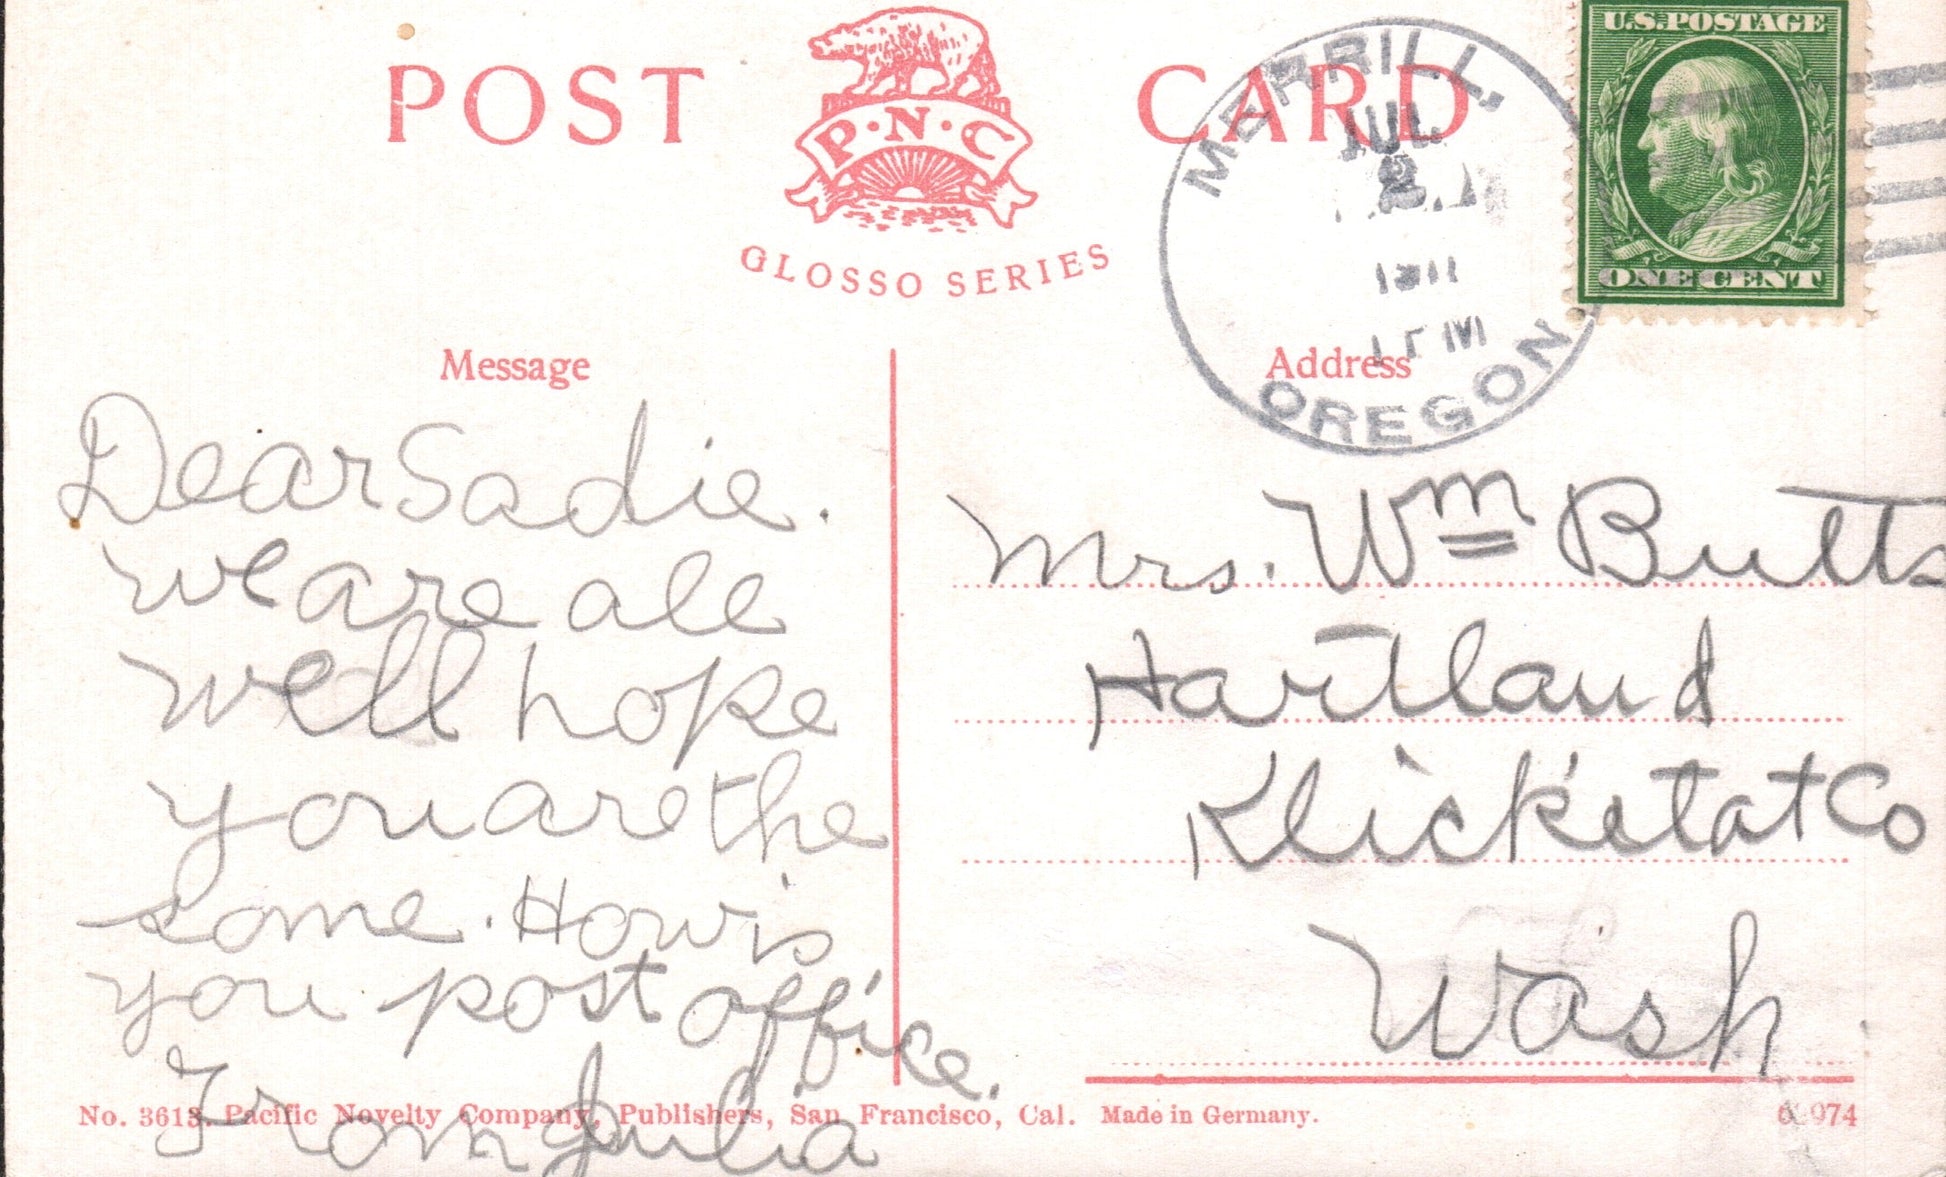 POST CARD
P·N·C
GLOSSO SERIES
U.S. POSTAGE
ONE CENT
MERRILL,
JUL
2
1911
OREGON
Message
Address
Dear Sadie.
we are all
well hope
you are the
some. How is
you post office.
From Julia
Mrs. Wm Butts
Hartland
Klickitat Co
Wash
No. 3613. Pacific Novelty Company, Publishers, San Francisco, Cal. Made in Germany.